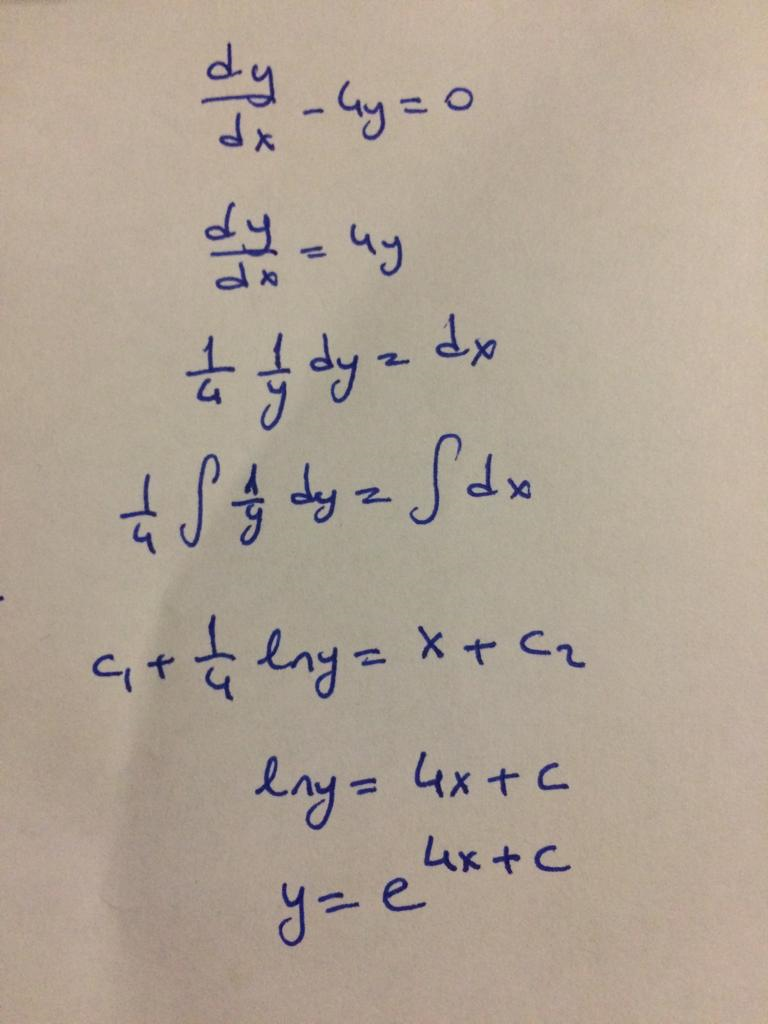 dy/dx - 4y = 0
dy/dx = 4y
1/4 1/y dy = dx
1/4 ∫ 1/y dy = ∫ dx
c₁ + 1/4 lny = x + c₂
lny = 4x + c
y = e^(4x + c)